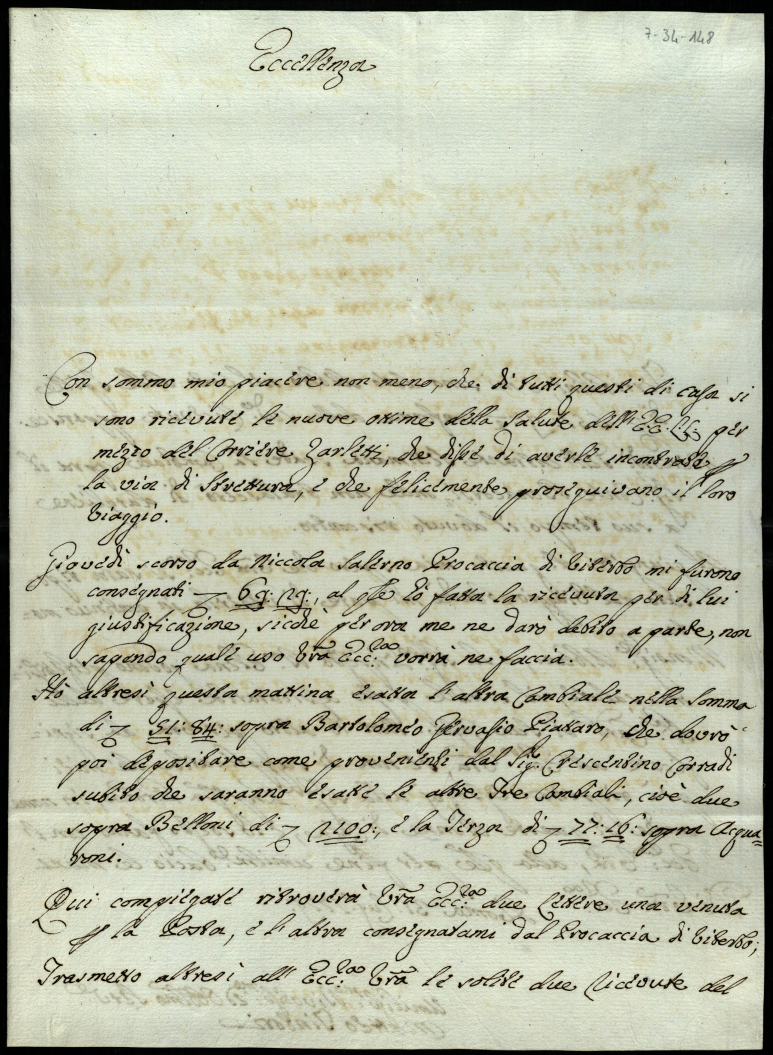 7-34-148
Eccellenza
Con sommo mio piacere non meno, che di tutti questi di casa si
sono ricevute le nuove ottime della salute dell' EE. LL: per
mezzo del Corriere Zarletti, che disse di averle incontrate p
la via di Strettura, e che felicemente proseguivano il loro
viaggio.
Giovedì scorso da Niccola Salerno Procaccia di Viterbo mi furono
consegnati 69: 29:, al qle hò fatta la ricevuta per di lui
giustificazione, sicchè per ora me ne darò debito a parte, non
sapendo quale uso Vra Ecc:za vorrà ne faccia.
Hò altresì questa mattina esatta l'altra Cambiale nella somma
di 51: 84: sopra Bartolomeo Gervasio Piataro, che dovrò
poi depositare come provenienti dal Sig: Crescentino Corradi
subito che saranno esatte le altre Tre Cambiali, cioè due
sopra Belloni di 2100:, e la Terza di 77: 16: sopra Acqua-
roni.
Qui compiegate ritroverà Vra Ecc:za due Lettere una venuta
p la Posta, e l'altra consegnatami dal Procaccia di Viterbo;
Trasmetto altresì all' Ecc:za Vra le solite due Ricevute del